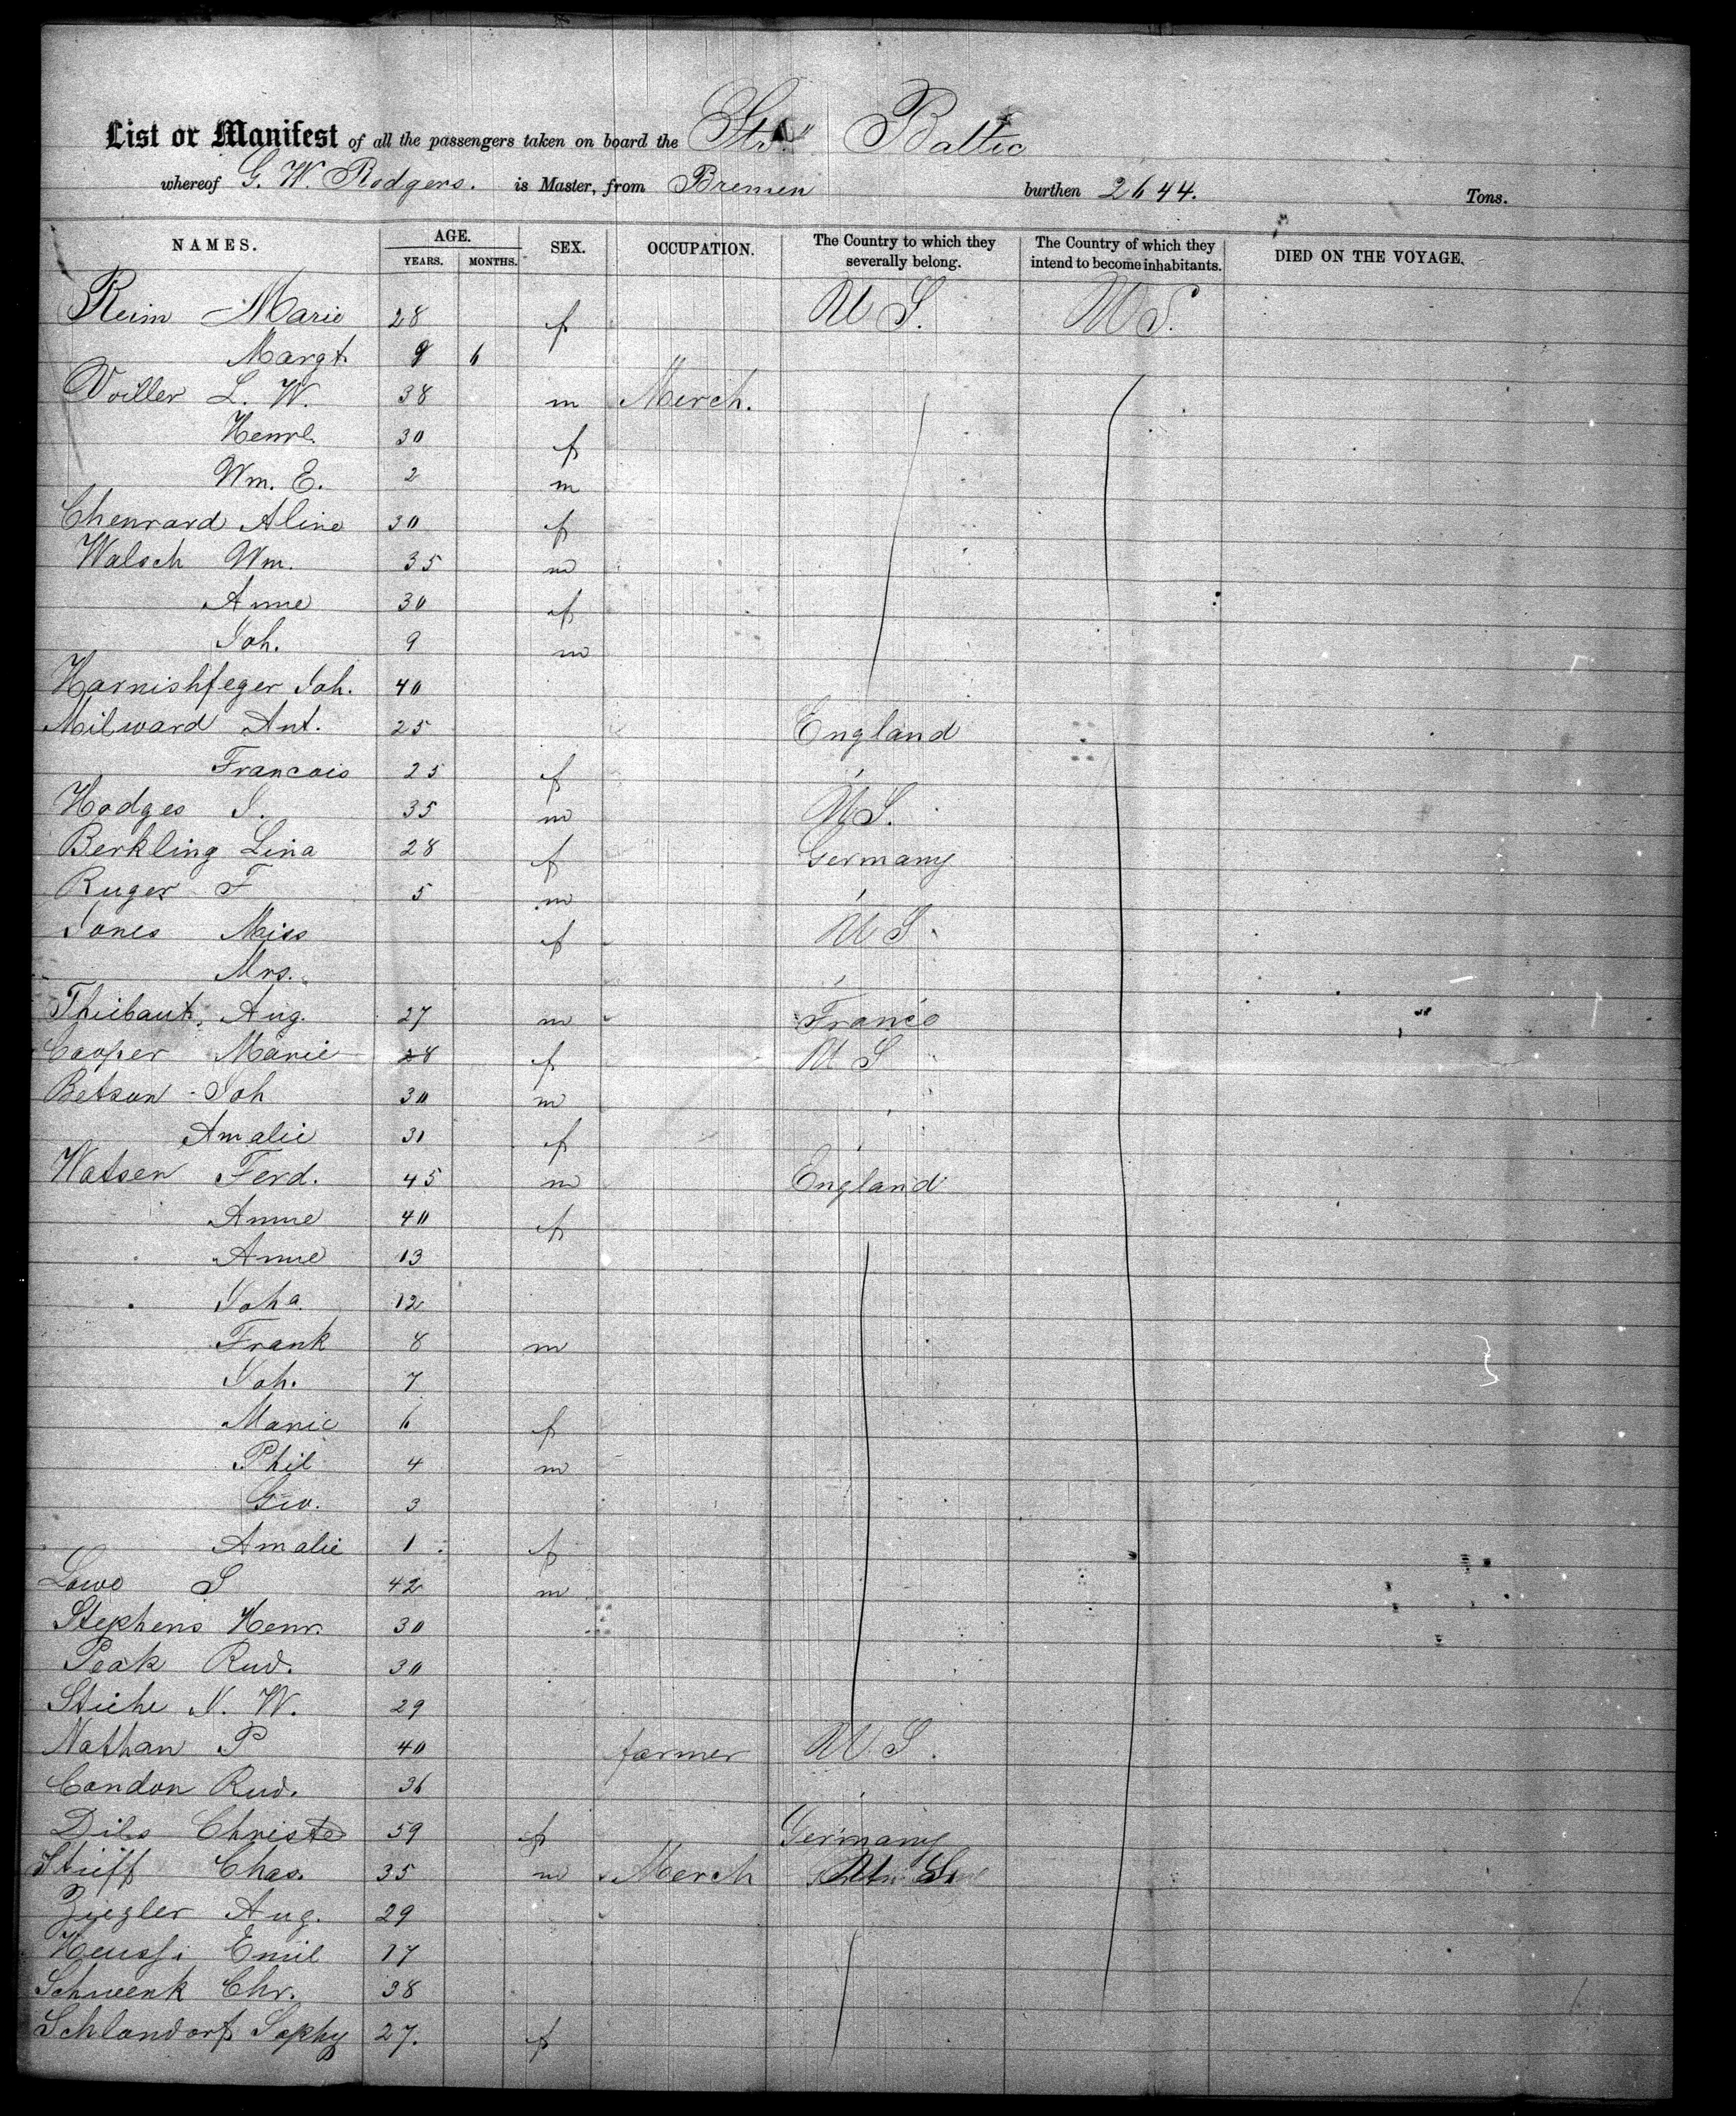 List or Manifest of all the passengers taken on board the Str. Baltic
whereof G. W. Rodgers. is Master, from Bremen burthen 2644. Tons.
NAMES. AGE. SEX. OCCUPATION. The Country to which they severally belong. The Country of which they intend to become inhabitants. DIED ON THE VOYAGE.
YEARS. MONTHS.
Reim Marie 28 f U S. U S.
Margt. 9 6
Voiller L. W. 38 m Merch.
30 f
Wm. E. 2 m
Chenrard Aline 30 f
Walsch Wm. 35 m
Anne 30 f
Joh. 9 m
Harnishfeger Joh. 40
Milward Ant. 25 England
Francois 25 f "
Hodges J. 35 m U S.
Berkling Lina 28 f Germany
Ruger F 5 m "
Jones Miss f U S.
Mrs. "
Thiebaut, Aug. 27 m France
Cooper Marie 28 f U S
Betson Joh 30 m "
Amalie 31 f "
Watsen Ferd. 45 m England
Anne 40 f
Anne 13
Joha. 12
Frank 8 m
Joh. 7
Marie 6 f
Phil 4 m
Geo. 3
Amalie 1 f
Lowe S 42 m
Stephens Henr. 30
Peak Rud. 30
Stiehe N. W. 29
Nathan P 40 farmer U. S.
Condon Rud. 36 "
Dils Christe 59 f Germany
Stieff Chas. 35 m Merch U S
Ziegler Aug. 29
Heussi Emil 17
Schweenk Chr. 38
Schlandorf Sophy 27. f